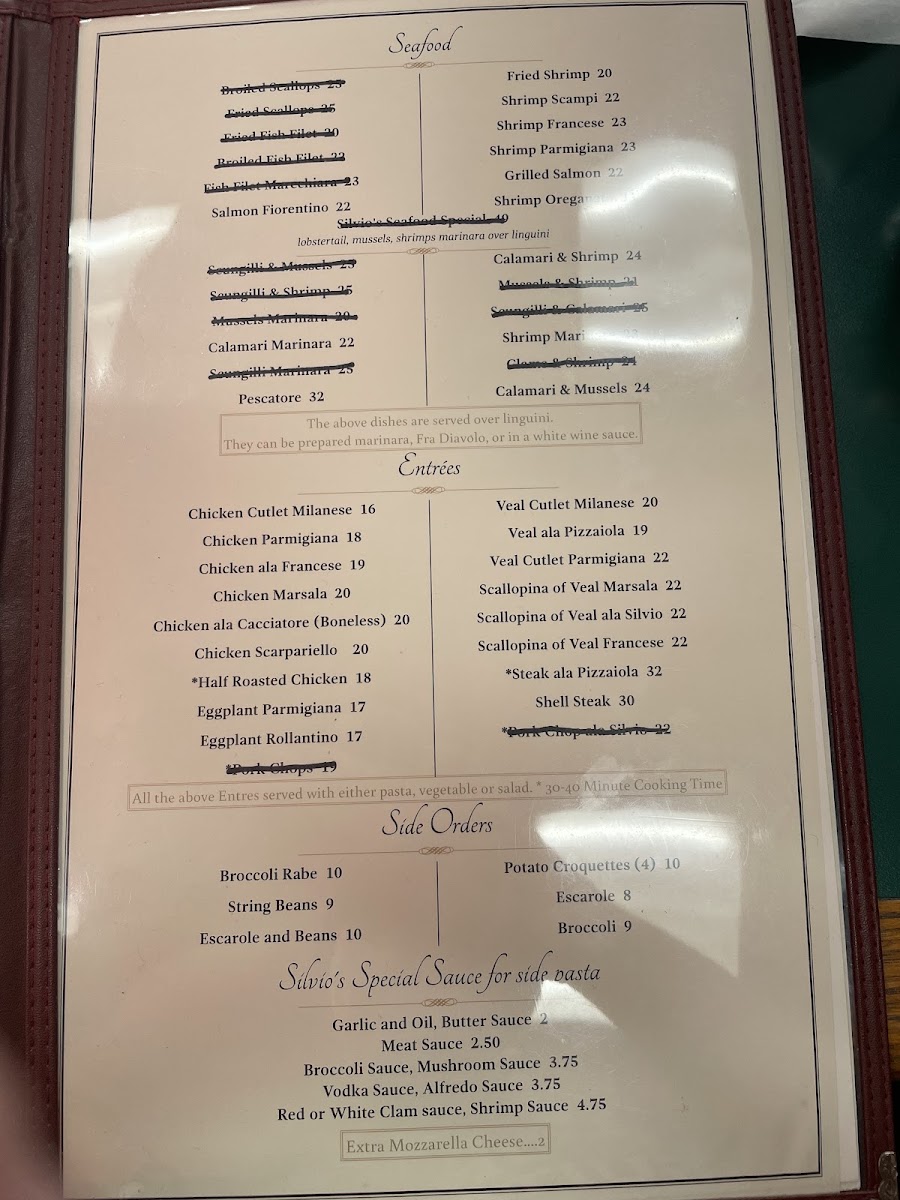 Seafood
Broiled Scallops 25
Fried Scallops 25
Fried Fish Filet 20
Broiled Fish Filet 22
Fish Filet Marechiara 23
Salmon Fiorentino 22
Fried Shrimp 20
Shrimp Scampi 22
Shrimp Francese 23
Shrimp Parmigiana 23
Grilled Salmon 22
Shrimp
Silvio's Seafood Special 40
lobstertail, mussels, shrimps marinara over linguini
Scungilli & Mussels 25
Scungilli & Shrimp 25
Mussels Marinara 20
Calamari Marinara 22
Scungilli Marinara 25
Pescatore 32
Calamari & Shrimp 24
Mussels & Shrimp 21
Scungilli & Calamari 25
Shrimp
Clams & Shrimp 24
Calamari & Mussels 24
The above dishes are served over linguini.
They can be prepared marinara, Fra Diavolo, or in a white wine sauce.
Entrées
Chicken Cutlet Milanese 16
Chicken Parmigiana 18
Chicken ala Francese 19
Chicken Marsala 20
Chicken ala Cacciatore (Boneless) 20
Chicken Scarpariello 20
*Half Roasted Chicken 18
Eggplant Parmigiana 17
Eggplant Rollantino 17
*Pork Chops 19
Veal Cutlet Milanese 20
Veal ala Pizzaiola 19
Veal Cutlet Parmigiana 22
Scallopina of Veal Marsala 22
Scallopina of Veal ala Silvio 22
Scallopina of Veal Francese 22
*Steak ala Pizzaiola 32
Shell Steak 30
*Pork Chop ala Silvio 22
All the above Entres served with either pasta, vegetable or salad. * 30-40 Minute Cooking Time
Side Orders
Broccoli Rabe 10
String Beans 9
Escarole and Beans 10
Potato Croquettes (4) 10
Escarole 8
Broccoli 9
Silvio's Special Sauce for side pasta
Garlic and Oil, Butter Sauce 2
Meat Sauce 2.50
Broccoli Sauce, Mushroom Sauce 3.75
Vodka Sauce, Alfredo Sauce 3.75
Red or White Clam sauce, Shrimp Sauce 4.75
Extra Mozzarella Cheese....2